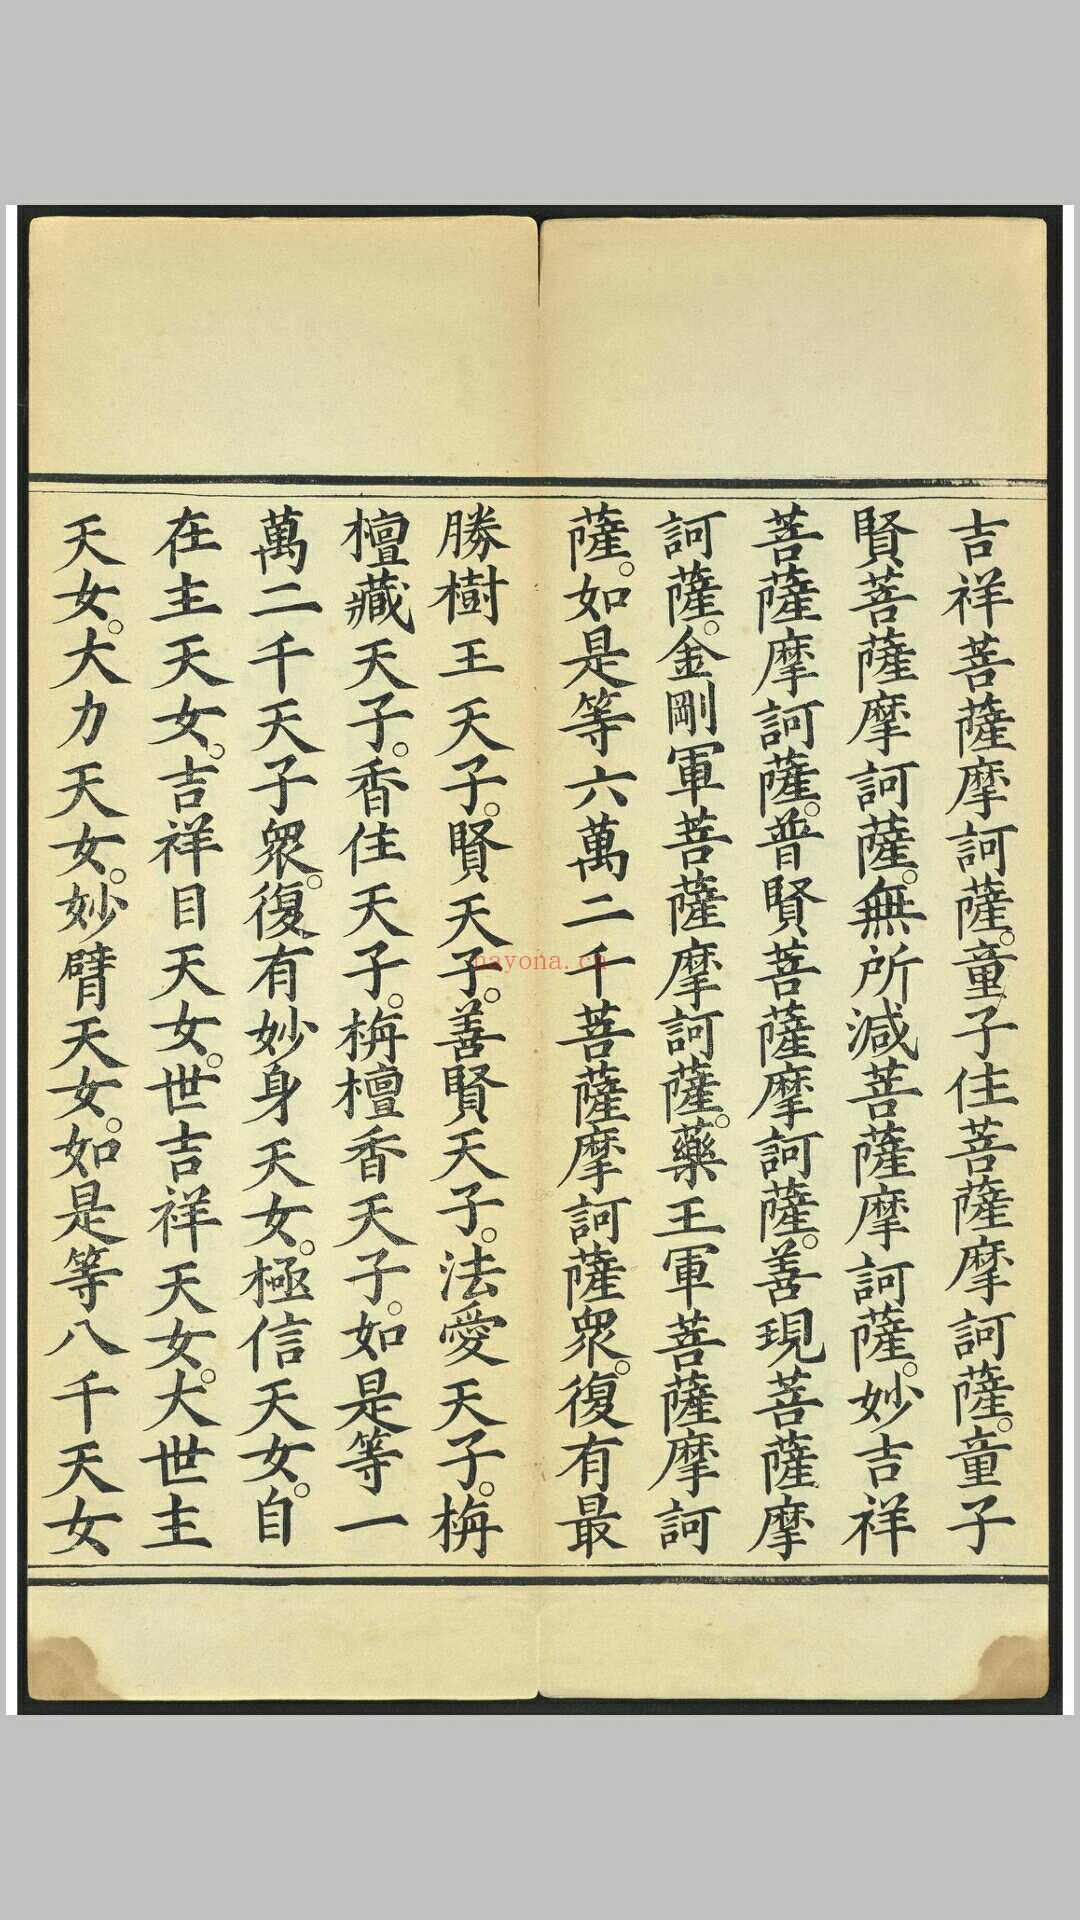 吉祥菩薩摩訶薩。童子住菩薩摩訶薩。童子
賢菩薩摩訶薩。無所減菩薩摩訶薩。妙吉祥
菩薩摩訶薩。普賢菩薩摩訶薩。善現菩薩摩
訶薩。金剛軍菩薩摩訶薩。藥王軍菩薩摩訶
薩。如是等六萬二千菩薩摩訶薩衆。復有最
勝樹王天子。賢天子。善賢天子。法愛天子。栴
檀藏天子。香住天子。栴檀香天子。如是等一
萬二千天子衆。復有妙身天女。極信天女。自
在主天女。吉祥目天女。世吉祥天女。大世主
天女。大力天女。妙臂天女。如是等八千天女
nayona.cn